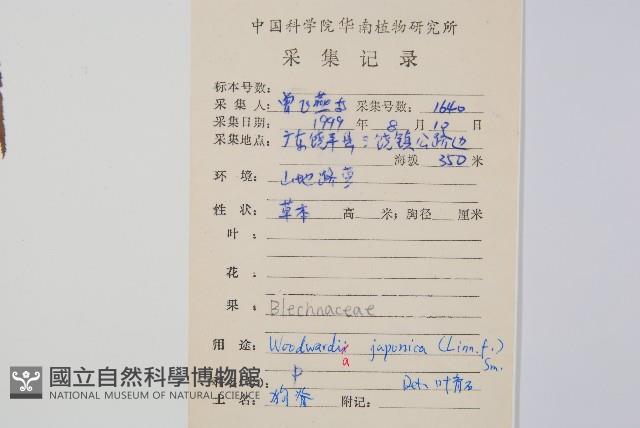 中国科学院华南植物研究所
采集记录
标本号数:
采集人: 曾飞燕 采集号数: 1640
采集日期: 1999 年 8 月 10 日
采集地点: 广东饶平县三饶镇公路边
海拨 350 米
环境: 山地路旁
性状: 草本 高 米; 胸径 厘米
叶:
花:
果: Blechnaceae
用途: Woodwardia japonica (Linn.f.)
a Sm.
p Det. 叶育石
土名: 狗脊 附记:
國立自然科學博物館
NATIONAL MUSEUM OF NATURAL SCIENCE